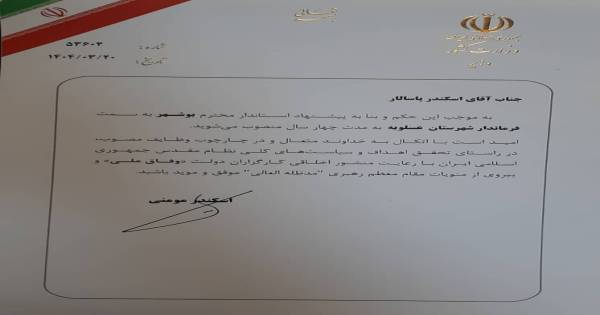 شماره: ۵۳۶۰۲
تاریخ: ۱۴۰۴/۰۳/۲۰
وزارت کشور
جناب آقای اسکندر پاسالار
به موجب این حکم و بنا به پیشنهاد استاندار محترم بوشهر به سمت
فرماندار شهرستان عسلویه به مدت چهار سال منصوب می‌شوید.
امید است با اتکال به خداوند متعال و در چارچوب وظایف مصوب،
در راستای تحقق اهداف و سیاست‌های کلی نظام مقدس جمهوری
اسلامی ایران با رعایت منشور اخلاقی کارگزاران دولت «وفاق ملی» و
پیروی از منویات مقام معظم رهبری "مدظله العالی" موفق و موید باشید.
اسکندر مومنی